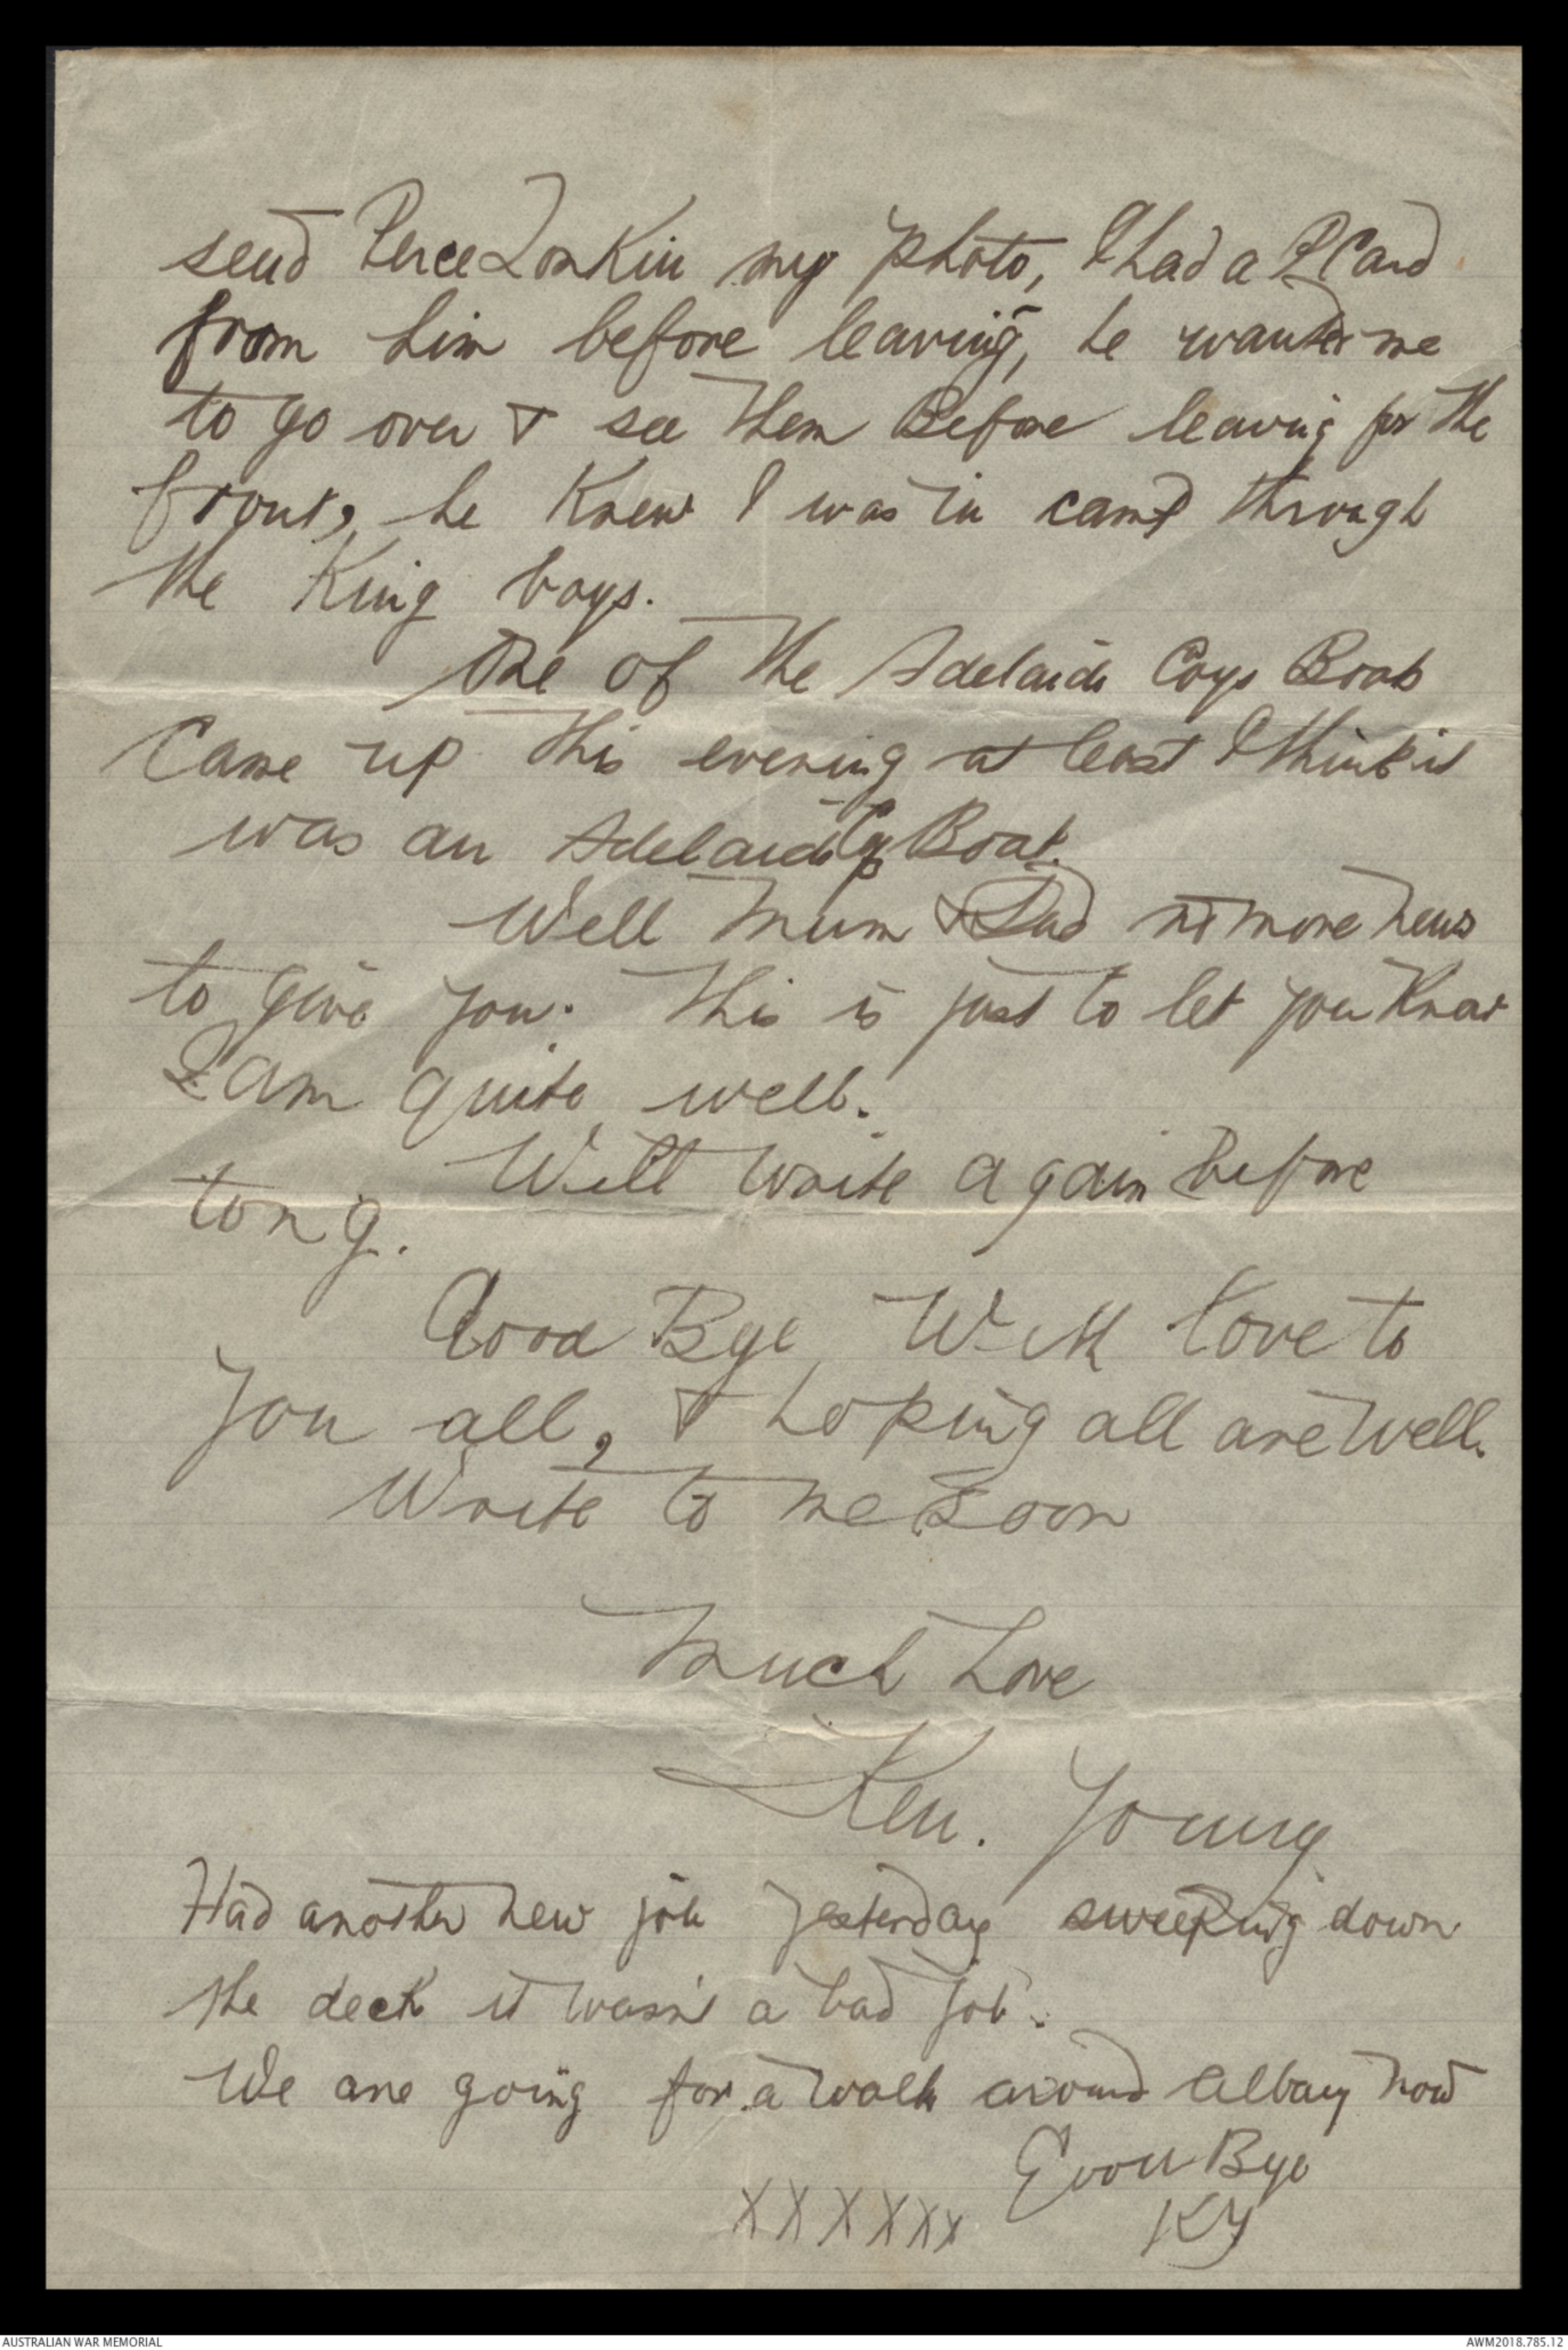 send Perce Lonkin my photo, I had a P Card
from him before leaving, he wanted me
to go over & see them Before leaving for the
front, he Knew I was in camp through
the King boys.
One of the Adelaide Coys Boats
Came up this evening at least I think it
was an Adelaide Coy Boat.
Well Mum & Dad no more news
to give you. This is just to let you Know
I am quite well.
Will write again before
long.
Good Bye With love to
you all, & hoping all are well.
Write to me soon
Much Love
Ken. Young
Had another new job yesterday sweeping down
the deck it wasn't a bad job.
We are going for a walk around Albany now
Good Bye
XXXXXX
KY
AUSTRALIAN WAR MEMORIAL
AWM2018.785.12